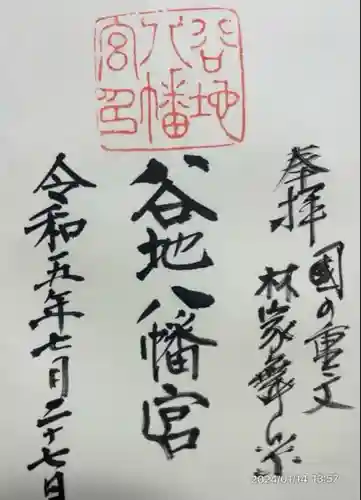 奉拝
国の重文
林家舞楽
谷地八幡宮
谷地
八幡
宮印
令和五年七月二十七日
2024/01/14 13:57